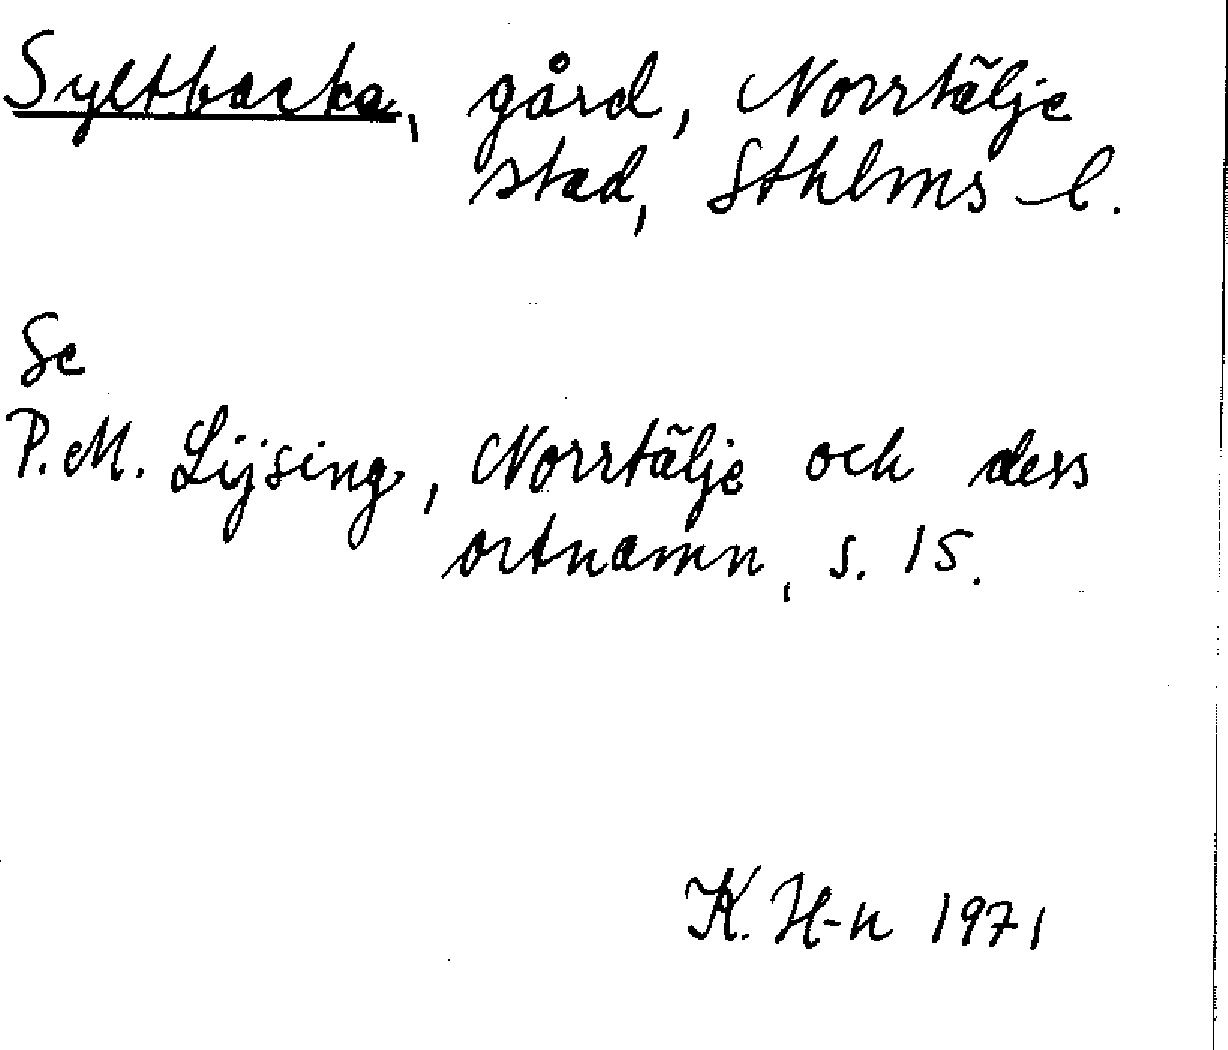 Syltbacka, gård, Norrtälje
stad, Sthlms l.
Se
P.M. Lijsing, Norrtälje och dess
ortnamn, s. 15.
K. H-n 1971